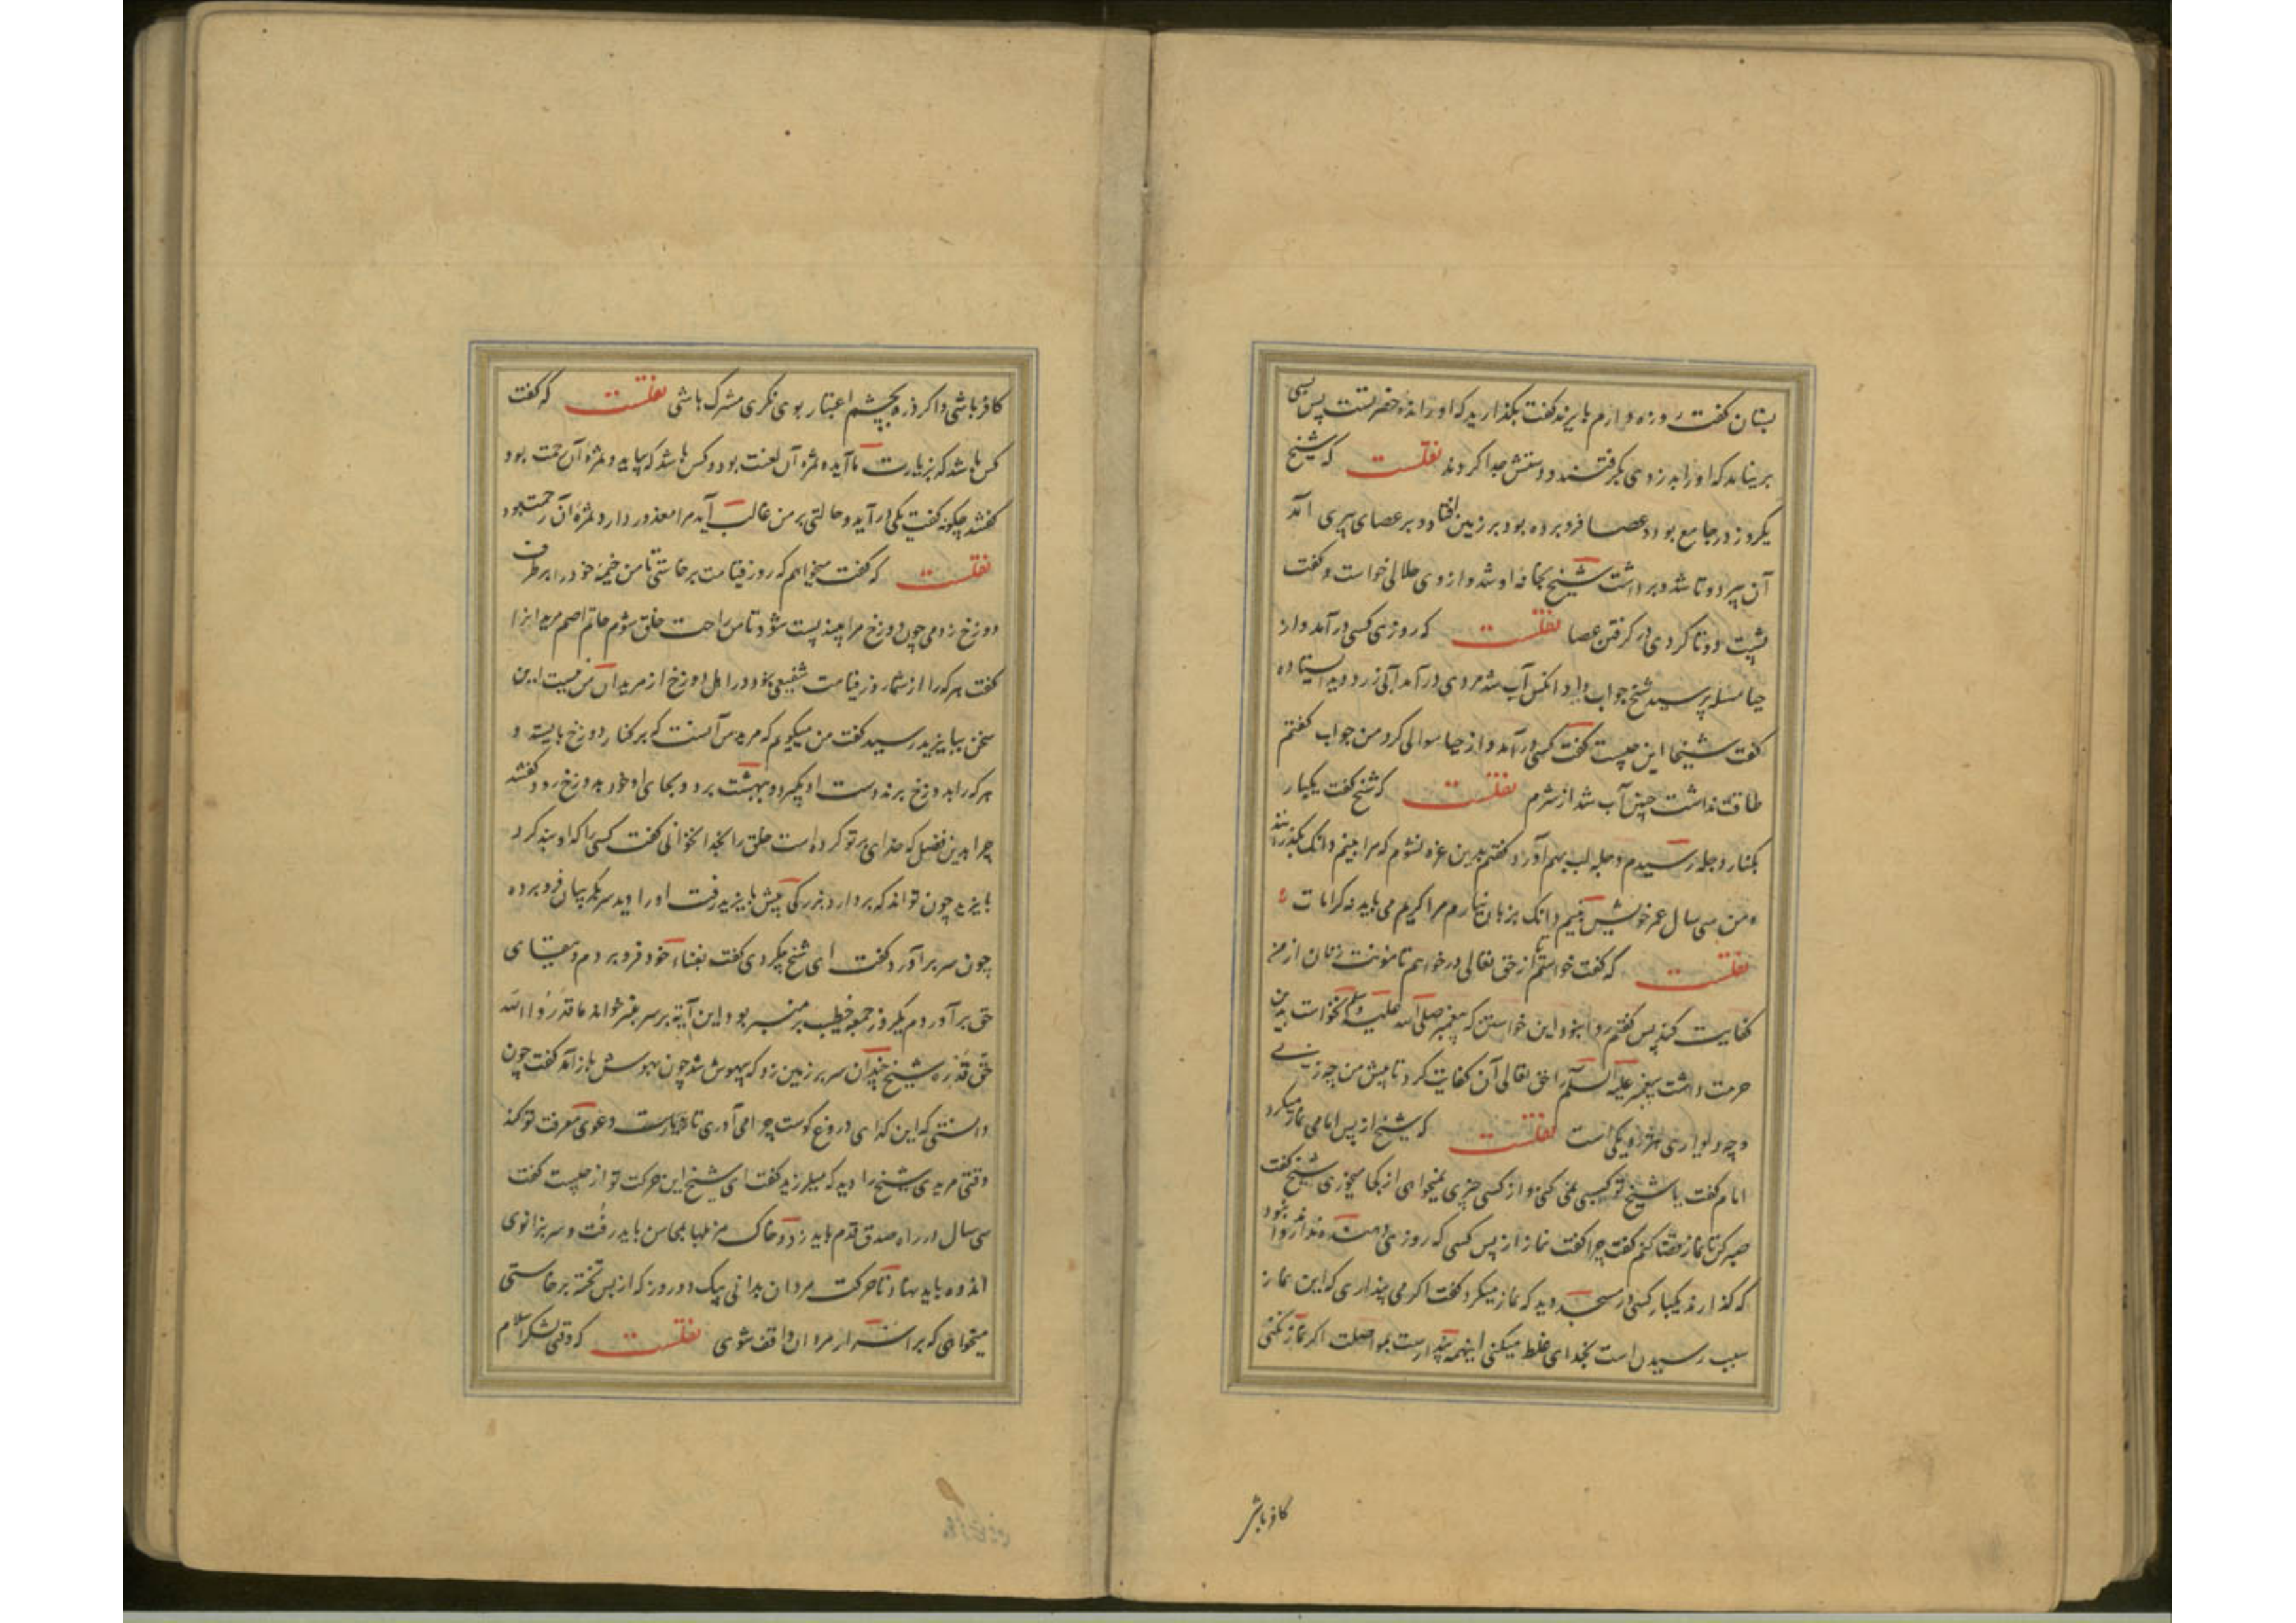 بستان گفت روزه دارم بایزید گفت بگذارید که او رانده حضرتست پس بسی
بر نیامد که او را بدزدی بگرفتند و دستش جدا کردند نقلست که شیخ
یکروز در جامع بود و عصا فرو برده بود بر زمین افتاد و بر عصای پیری آمد
آن پیر دوتا شد و برداشت شیخ بخانه او شد و از وی حلالی خواست و گفت
پشت دوتا کردی در گرفتن عصا نقلست که روزی کسی درآمد و از
حیا مسئله پرسید شیخ جواب داد آنکس آب شد مردی درآمد آبی زرد دید ایستاده
گفت شیخا این چیست گفت کسی درآمد و از حیا سوالی کرد من جواب گفتم
طاقت نداشت چنین آب شد از شرم نقلست که شیخ گفت یکبار
بکنار دجله رسیدم دجله لب بهم آورد گفتم بدین غره نشوم که مرا بنیم دانک بگذرانند
و من سی سال عمر خویش بنیم دانک بزیان نیارم مرا کریم می باید نه کرامات
نقلست که گفت خواستم تا از حق تعالی درخواهم تا مونت زنان از من
کفایت کند پس گفتم روا نبود این خواستن که پیغمبر صلی الله علیه وسلم نخواست بدین
حرمت داشت پیغمبر علیه السلام را حق تعالی آن کفایت کرد تا پیش من چه زنی
و چه دیواری هر دو یکی است نقلست که شیخ از پس امامی نماز میکرد
امام گفت یا شیخ تو کسبی نمی کنی و از کسی چیزی نمیخواهی از کجا میخوری شیخ گفت
صبر کن تا نماز قضا کنم گفت چرا گفت نماز از پس کسی که روزی دهنده نداند روا نبود
که گذارند یکبار کسی در مسجد دید که نماز میکرد گفت اگر می پنداری که این نماز
سبب رسیدن است بخدای غلط میکنی اینهمه پندارست نه مواصلت اگر نماز نکنی
کافر باشی
کافر باشی و اگر ذره بچشم اعتبار بوی نگری مشرک باشی نقلست که گفت
کس باشد که بزیارت ما آید و ثمره آن لعنت بود و کس باشد که بیاید و ثمره آن رحمت بود
گفتند چگونه گفت یکی درآید و حالتی بر من غالب آید مرا معذور دارد ثمره آن رحمت بود
نقلست که گفت میخواهم که روز قیامت برخاستی تا من خیمه خود را بر طرف
دوزخ زدمی چون دوزخ مرا بیند پست شود تا من راحت خلق شوم حاتم اصم مریدانرا
گفت هر که را از شما روز قیامت شفیع نبود در اهل دوزخ از مریدان من نیست این
سخن ببایزید رسید گفت من میگویم که مرید من آنست که بر کنار دوزخ بایستد و
هر که را بدوزخ برند دست او بگیرد و ببهشت برد و بجای او خود بدوزخ رود گفتند
چرا بدین فضل که خدای بر تو کرده است خلق را بخدا نخوانی گفت کسی را که او بند کرد
بایزید چون تواند که بردارد بزرگی پیش بایزید رفت او را دید سر بگریبان فرو برده
چون سر برآورد گفت ای شیخ چکردی گفت بفناء خود فرو بردم و ببقای
حق برآوردم یکروز جمعه خطیب بر منبر بود این آیه بر سر منبر خواند ما قدروا الله
حق قدره شیخ چندان سر بر زمین زد که بیهوش شد چون بهوش بازآمد گفت چون
دانستی که این گدای دروغ گوست چرا می آوری تا دعوی معرفت تو کند
وقتی مریدی شیخ را دید که میلرزید گفت ای شیخ این حرکت تو از چیست گفت
سی سال در راه صدق قدم باید زد و خاک مزبلها بمحاسن باید رفت و سر بزانوی
اندوه باید نهاد تا حرکت مردان بدانی بیک دو روز که از پس تخته برخاستی
میخواهی که بر اسرار مردان واقف شوی نقلست که وقتی لشکر اسلام